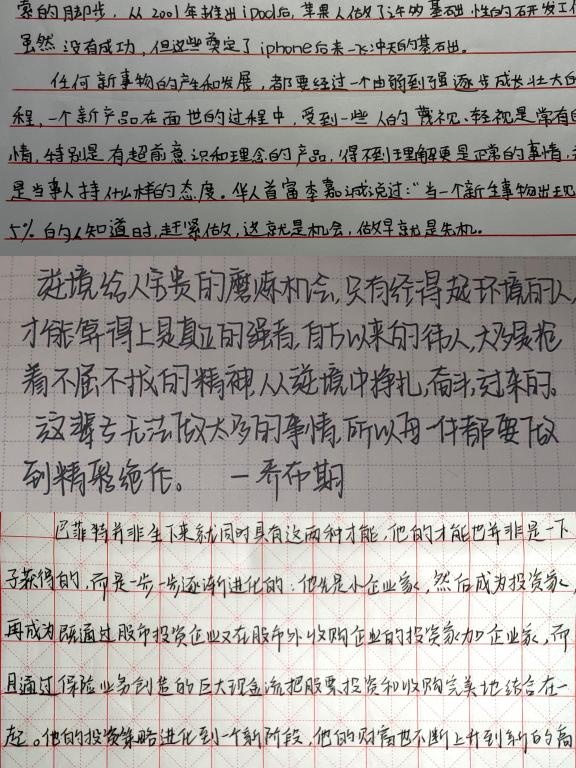 索的脚步，从2001年推出iPod后，苹果人做了许多基础性的研发工作
虽然没有成功，但这些奠定了iphone后来一飞冲天的基石出。
任何新事物的产生和发展，都要经过一个由弱到强逐步成长壮大的
程，一个新产品在面世的过程中，受到一些人的蔑视、轻视是常有的
情，特别是有超前意识和理念的产品，得不到理解更是正常的事情，
是当事人持什么样的态度。华人首富李嘉诚说过：“当一个新生事物出现
5%的人知道时，赶紧做，这就是机会，做早就是先机。
逆境给人宝贵的磨炼机会，只有经得起环境的人，
才能算得上是真正的强者，自古以来的伟人，大多是抱
着不屈不挠的精神，从逆境中挣扎，奋斗，过来的。
这辈子无法做太多的事情，所以每一件都要做
到精彩绝伦。 —乔布斯
巴菲特并非生下来就同时具有这两种才能，他的才能也并非是一下
子获得的，而是一步一步逐渐进化的：他先是小企业家，然后成为投资家，
再成为既通过股市投资企业又在股市外收购企业的投资家加企业家，而
且通过保险业务创造的巨大现金流把股票投资和收购完美地结合在一
起。他的投资策略进化到一个新阶段，他的财富也不断上升到新的高